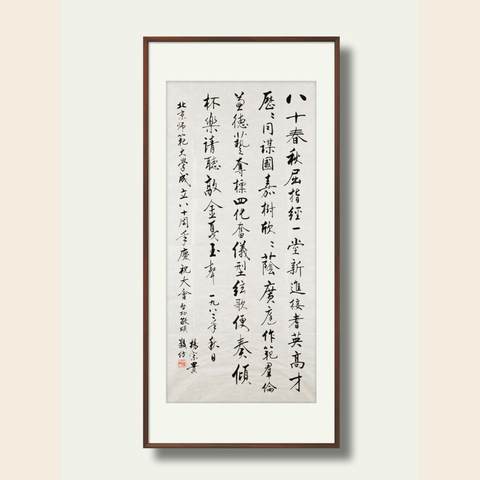 八十春秋屈指經一堂新進接耆英高才
歷〻同謀國嘉樹欣〻蔭廣庭作範羣倫
兼德藝奪標四化奮儀型絃歌便奏傾
杯樂請聽敲金戛玉聲 一九八二年秋日
北京师範大學成立八十周年慶祝大會
敬頌